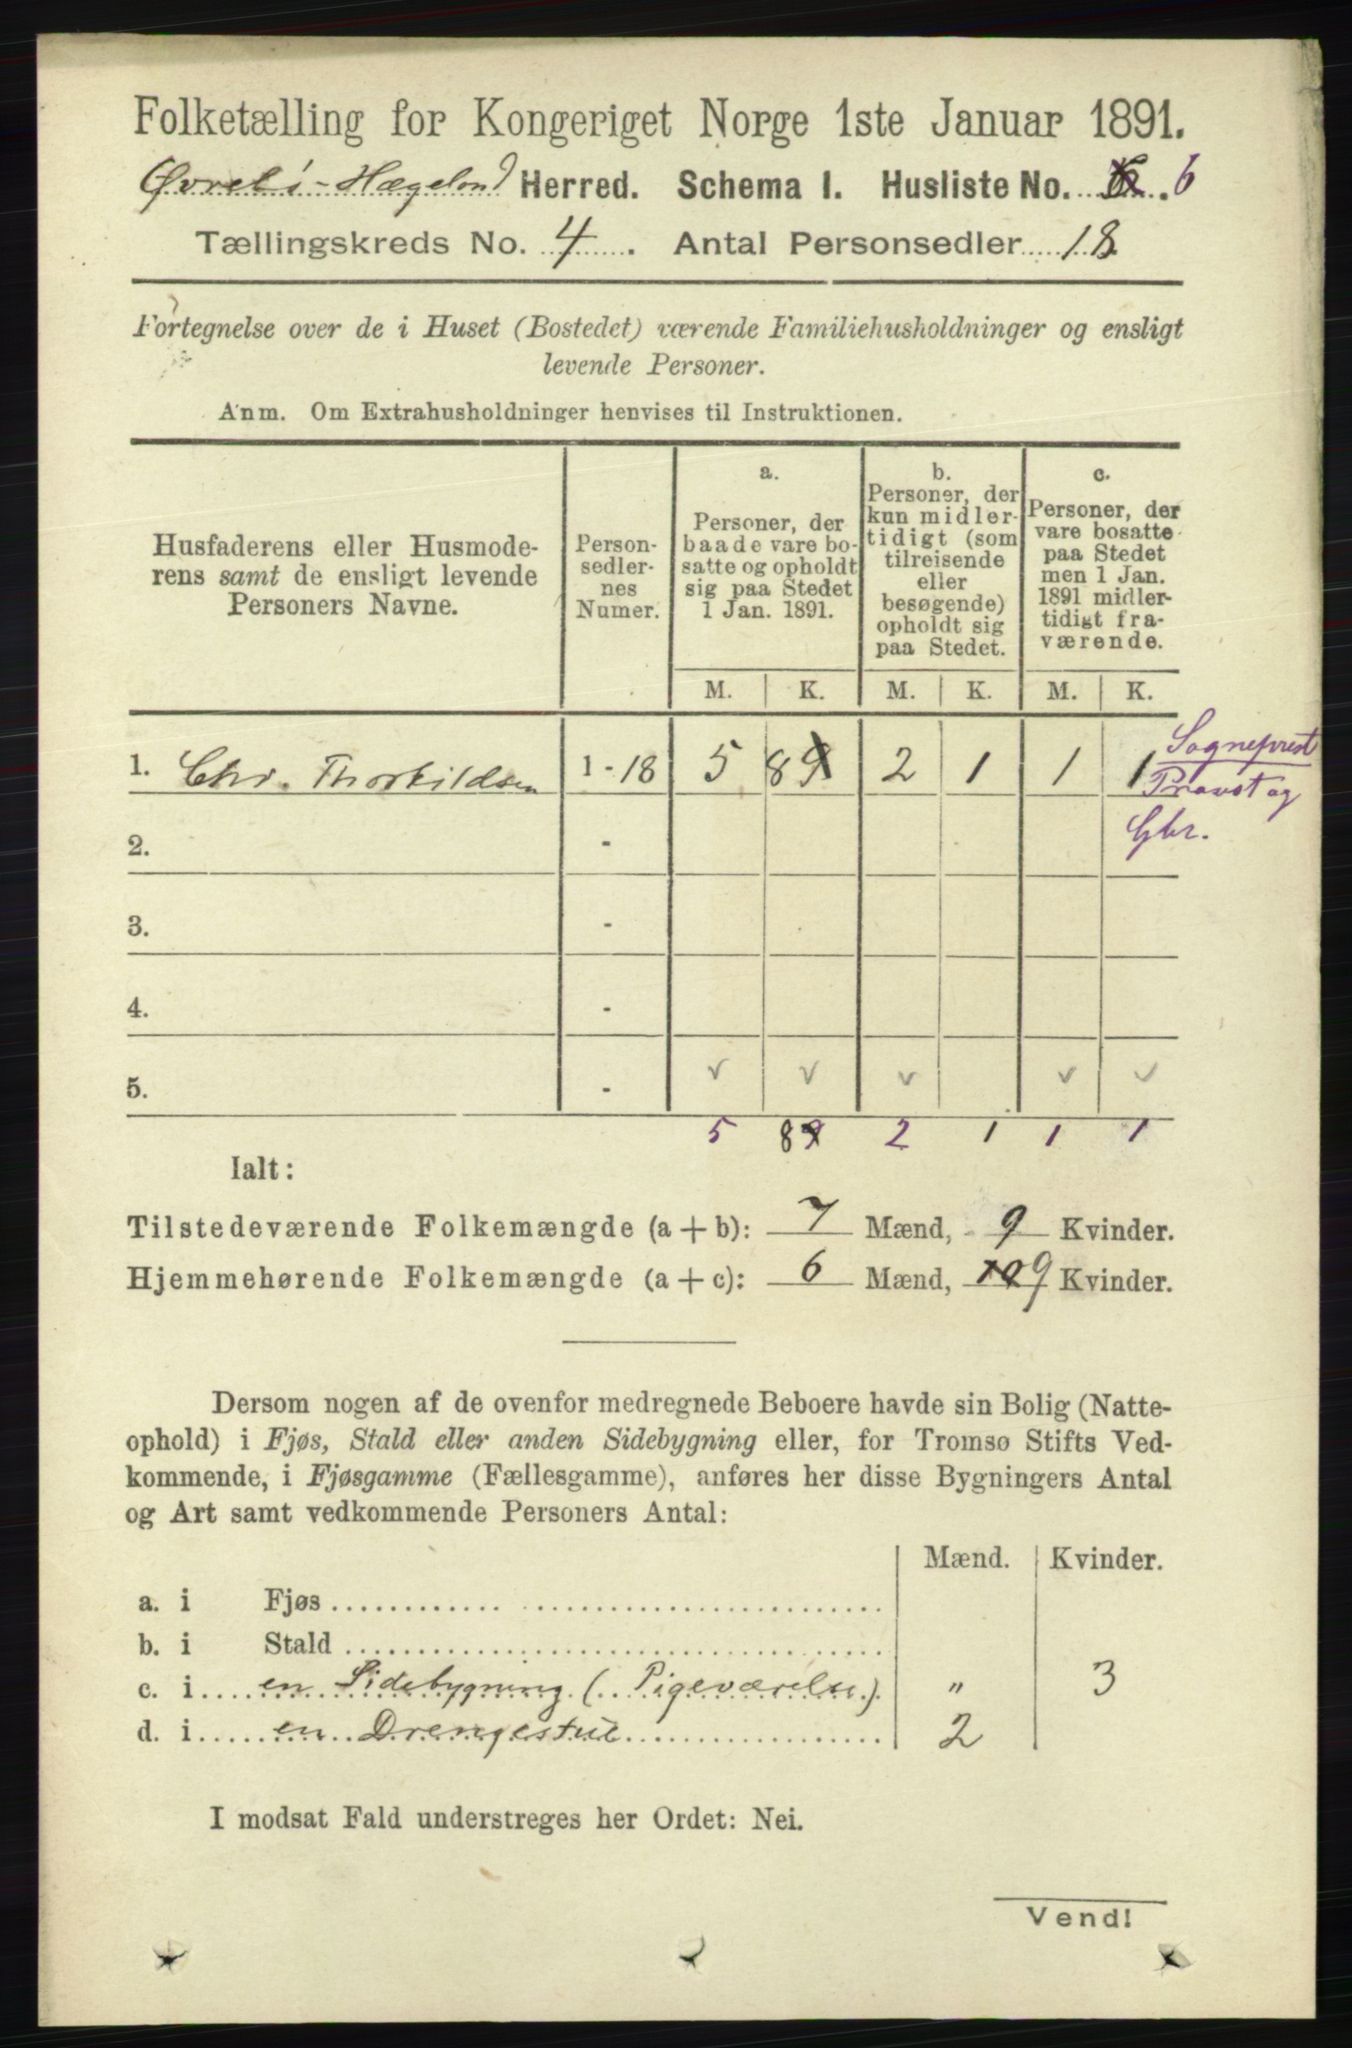 Folketælling for Kongeriget Norge 1ste Januar 1891.
Øvrebø-Hægeland Herred. Schema I. Husliste No. 6
Tællingskreds No. 4. Antal Personsedler 18
Fortegnelse over de i Huset (Bostedet) værende Familiehusholdninger og ensligt
levende Personer.
Anm. Om Extrahusholdninger henvises til Instruktionen.
Husfaderens eller Husmode-
rens samt de ensligt levende
Personers Navne.
Person-
sedler-
nes
Numer.
a.
Personer, der
baade vare bo-
satte og opholdt
sig paa Stedet
1 Jan. 1891.
b.
Personer, der
kun midler-
tidigt (som
tilreisende
eller
besøgende)
opholdt sig
paa Stedet.
c.
Personer, der
vare bosatte
paa Stedet
men 1 Jan.
1891 midler-
tidigt fra-
værende.
M. K. M. K. M. K.
1. Chr. Thorkildsen 1 - 18 5 8 9 2 1 1 1 Sogneprest
Provst og
Gbr.
2. -
3. -
4. -
5. - v v v v v
5 8 9 2 1 1 1
Ialt:
Tilstedeværende Folkemængde (a + b): 7 Mænd, 9 Kvinder.
Hjemmehørende Folkemængde (a + c): 6 Mænd, 10 9 Kvinder.
Dersom nogen af de ovenfor medregnede Beboere havde sin Bolig (Natte-
ophold) i Fjøs, Stald eller anden Sidebygning eller, for Tromsø Stifts Ved-
kommende, i Fjøsgamme (Fællesgamme), anføres her disse Bygningers Antal
og Art samt vedkommende Personers Antal:
Mænd. Kvinder.
a. i Fjøs
b. i Stald
c. i en Sidebygning (Pigeværelse) " 3
d. i en Drengestue 2
I modsat Fald understreges her Ordet: Nei.
Vend!